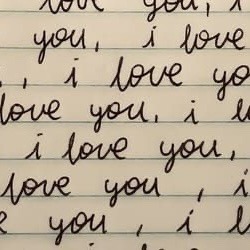 love you, i
you, i love
, i love yo
love you, i l
i love you,
love you , i
e you , i l